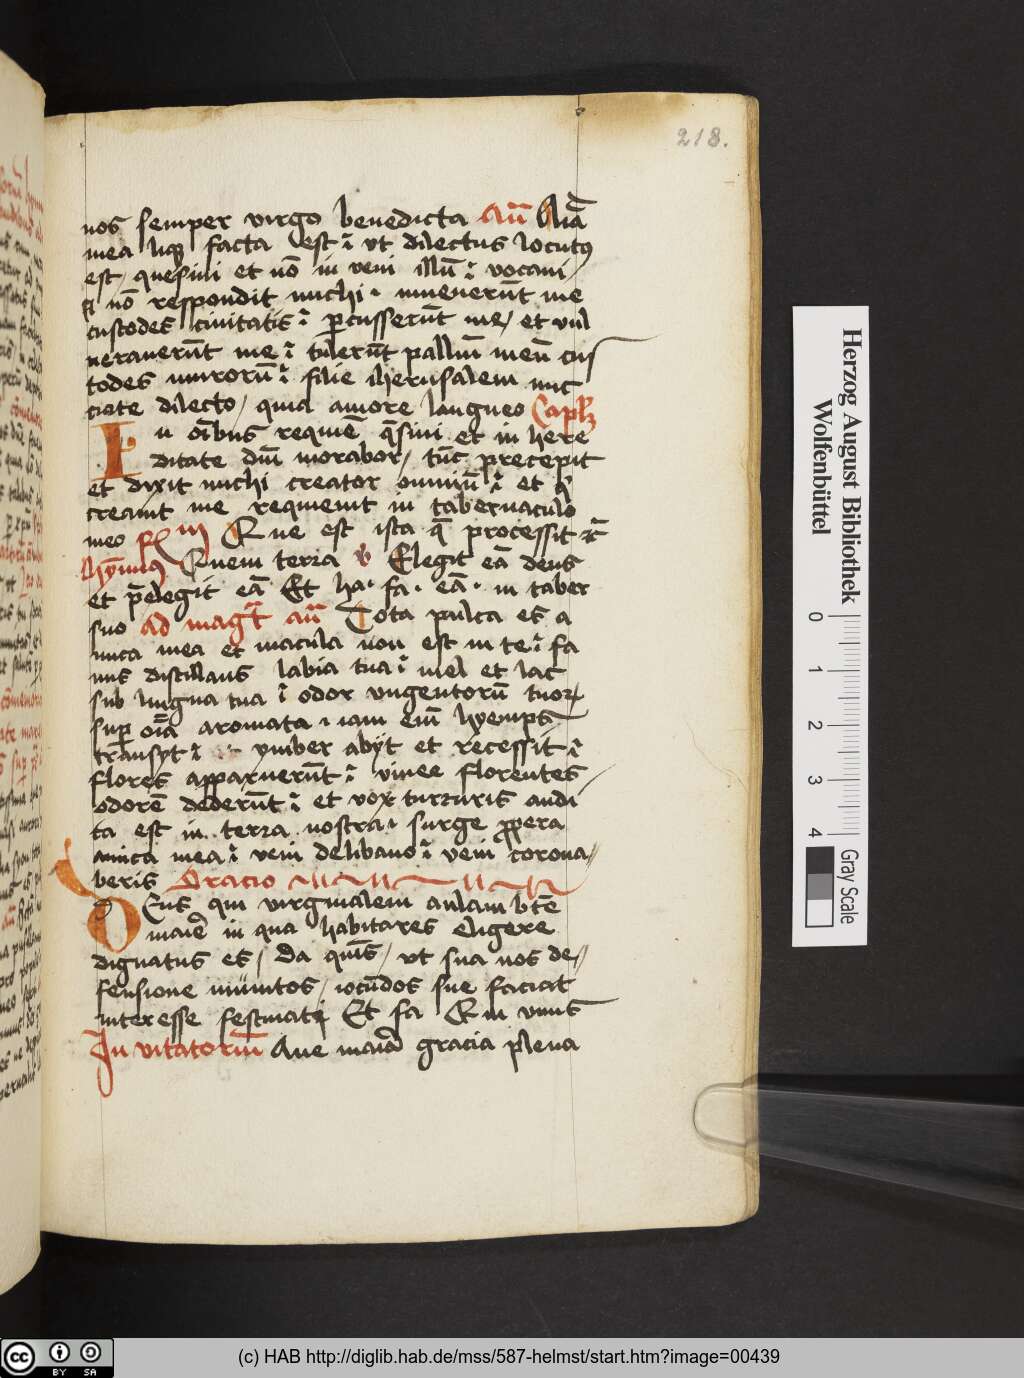 218.
nos semper virgo benedicta Añ Aīa
mea liq̄ facta est ⁊ ut dilectus locutus
est, quesiui et nō in veni illū ⁊ vocaui,
⁊ nō respondit michi. inuenerūt me
custodes ciuitatis ⁊ ꝑcusserūt me, et vul
nerauerūt me ⁊ tulerūt palliū meū cus
todes murorū ⁊ filie iherusalem nūc
ciate dilecto, quia amore langueo Capłm
In oībus requiē q̄siui et in here
ditate dm̄ morabor, tūc precepit
et dixit michi creator omniū ⁊ et qͥ
creauit me requieuit in tabernaculo
meo R Que est ista q̄ processit ⁊c̄
hymnus Quem terra v Elegit eā deus
et p̄elegit eā Et ha. fa. eā. in taber
suo Ad magt̄ añ Tota pulcra es a
mica mea et macula non est in te ⁊ fa
uus distillans labia tua ⁊ mel et lac
sub lingua tua ⁊ odor vngentorū tuoꝝ
suꝑ oīa aromata, iam enī hyemps
transyt ⁊ ymber abijt et recessit ⁊
flores apparuerūt ⁊ vinee florentes
odorē dederūt ⁊ et vox turturis audi
ta est in terra nostra. surge ꝓpera
amica mea ⁊ veni de libano ⁊ veni corona
beris Oracio
DEus qui virginalem aulam btē
marie in qua habitares eligere
dignatus es, Da qm̄s, ut sua nos de
fensione munitos, iocūdos sue faciat
interesse festiuitati Et fa Qui viuis
In vitatoriū Aue maria gracia plena
Herzog August Bibliothek
Wolfenbüttel
0 1 2 3 4
Gray Scale
cc BY SA
(c) HAB http://diglib.hab.de/mss/587-helmst/start.htm?image=00439